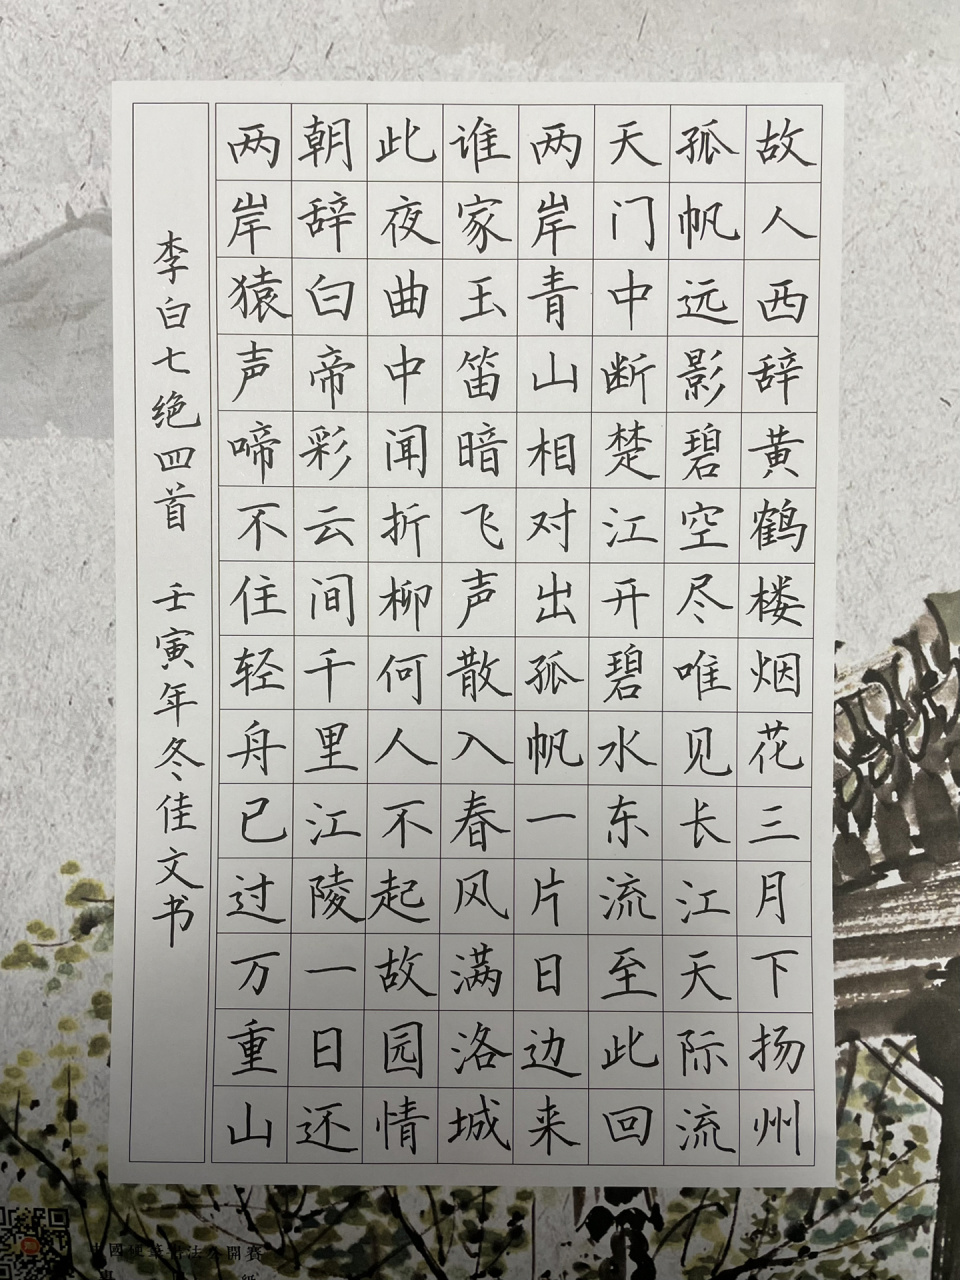 故人西辞黄鹤楼烟花三月下扬州
孤帆远影碧空尽唯见长江天际流
天门中断楚江开碧水东流至此回
两岸青山相对出孤帆一片日边来
谁家玉笛暗飞声散入春风满洛城
此夜曲中闻折柳何人不起故园情
朝辞白帝彩云间千里江陵一日还
两岸猿声啼不住轻舟已过万重山
李白七绝四首 壬寅年冬佳文书